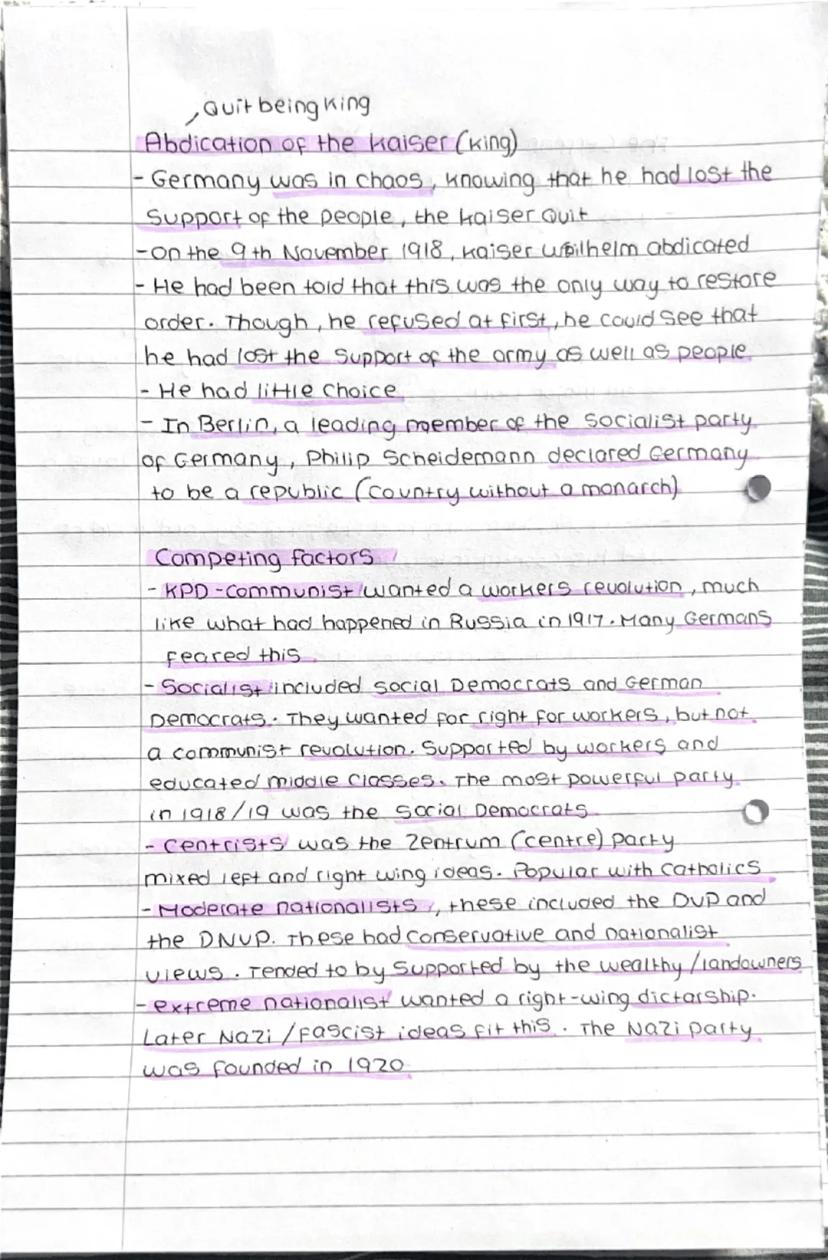 Quit being king
Abdication of the kaiser (king)
- Germany was in chaos, knowing that he had lost the
support of the people, the kaiser quit
- on the 9th November 1918, kaiser Wilhelm abdicated
- He had been told that this was the only way to restore
order. Though, he refused at first, he could see that
he had lost the support of the army as well as people.
- He had little choice
- In Berlin, a leading member of the socialist party
of Germany, Philip Scheidemann declared Germany
to be a republic (country without a monarch)
Competing factors
- KPD - communist wanted a workers revolution, much
like what had happened in Russia in 1917. Many Germans
feared this
- Socialist included social Democrats and German
Democrats. They wanted for right for workers, but not
a communist revolution. Supported by workers and
educated middle classes. The most powerful party
in 1918/19 was the social Democrats
- Centrists was the Zentrum (centre) party
mixed left and right wing ideas. Popular with Catholics.
- Moderate nationalists, these included the DVP and
the DNVP. These had conservative and nationalist
views. Tended to by supported by the wealthy/landowners
- extreme nationalist wanted a right-wing dictarship.
Later Nazi/fascist ideas fit this. The Nazi party
was founded in 1920.